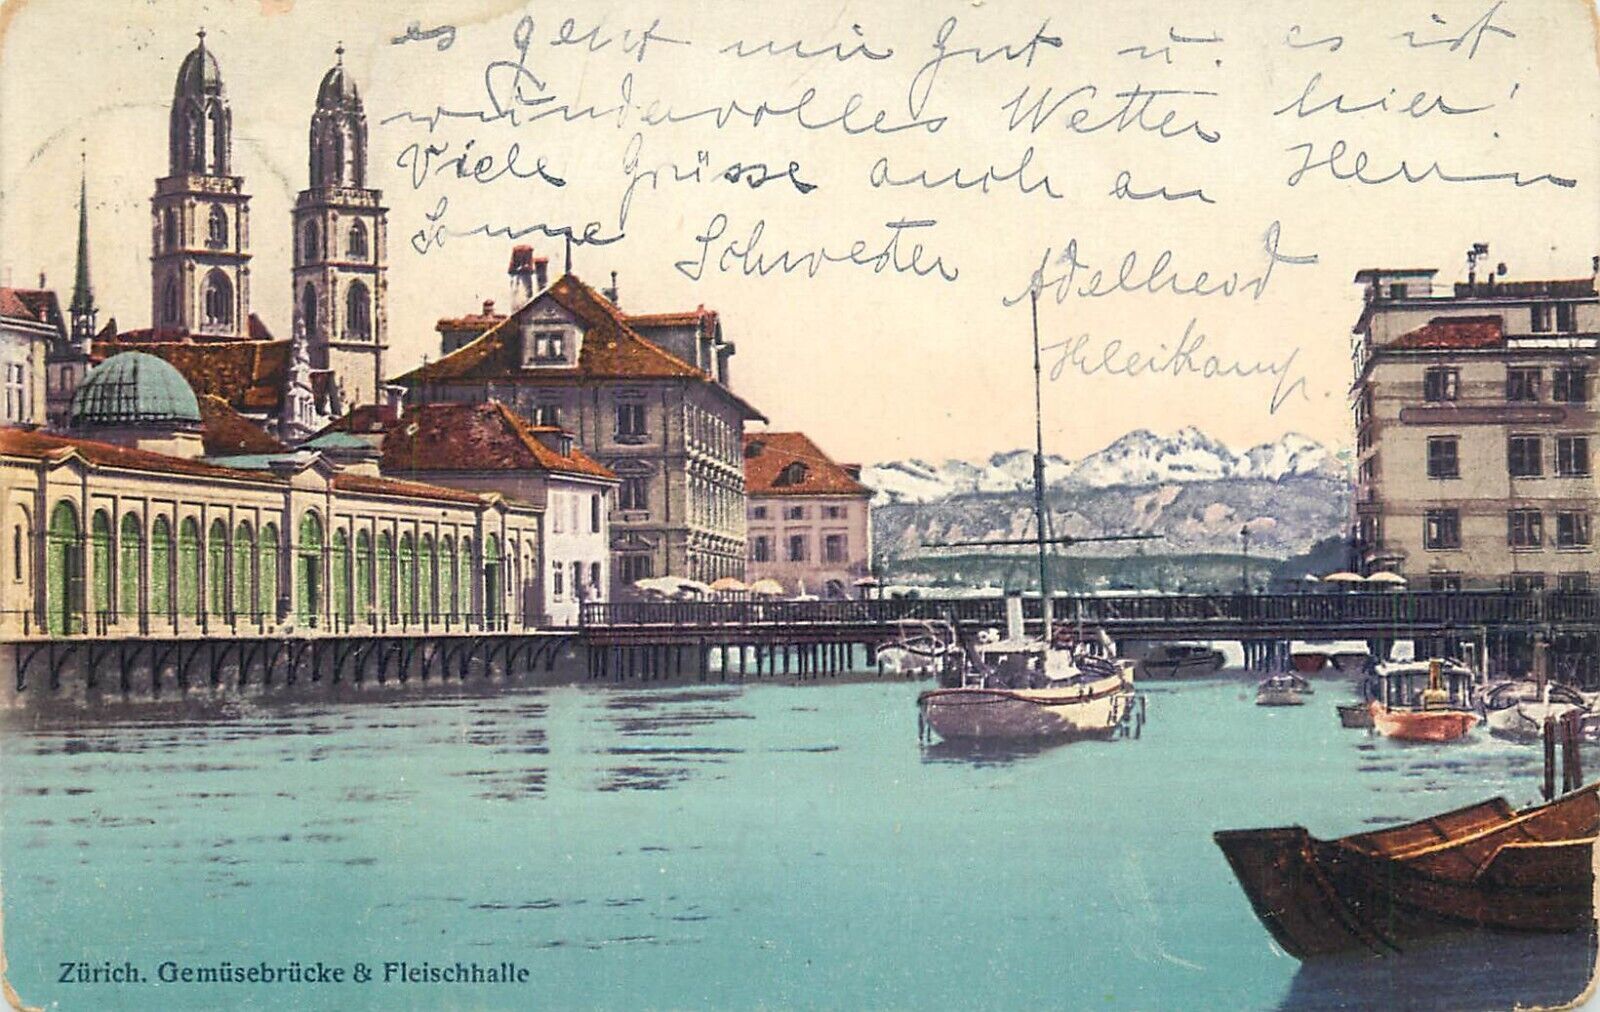 es geht mir gut u. es ist
wundervolles Wetter hier!
Viele Grüsse auch an Herrn
Sonne Schwester Adelheid
Kleikamp.
Zürich. Gemüsebrücke & Fleischhalle